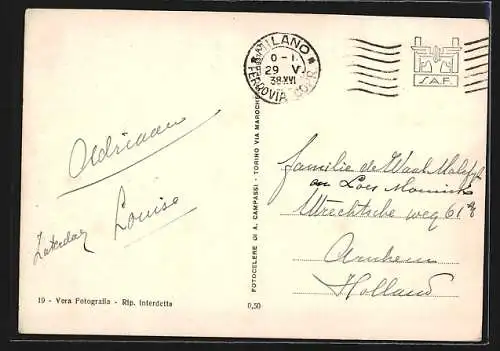 MILANO
FERROVIA CORR.
0-1.
29 V.
38·XVI
S.A.F.
Adriaan
Louise
Zaterdag
familie de Waal Malefyt
en Loes
Utrechtsche weg 61
Arnhem
Holland
FOTOCELERE DI A. CAMPASSI - TORINO VIA MAROCHE
19 - Vera Fotografia - Rip. interdetta
0,50